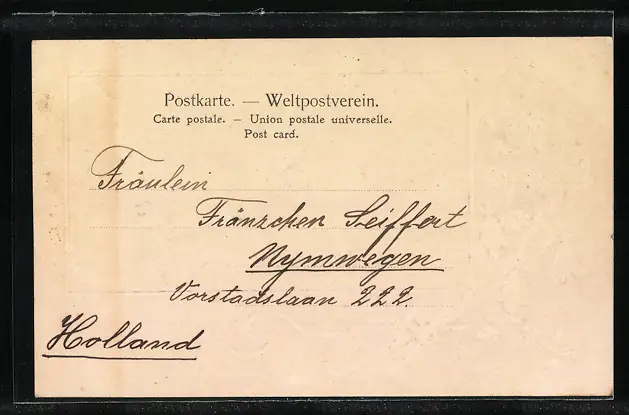 Postkarte. — Weltpostverein.
Carte postale. – Union postale universelle.
Post card.
Fräulein
Fränzchen Seiffert
Nymwegen
Vorstadslaan 222.
Holland